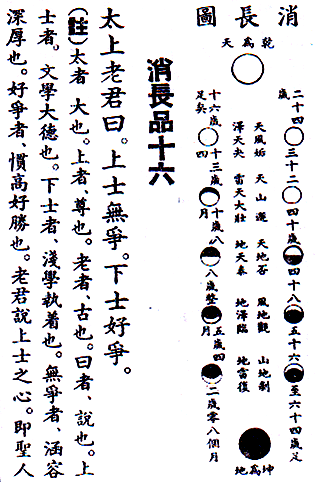 消長圖
乾為天
二十四歲 三十二 四十歲 四十八 五十六 至六十四歲足
天風姤 天山遯 天地否 風地觀 山地剝
澤天夬 雷天大壯 地天泰 地澤臨 地雷復
十六歲足矣 十三歲四 十歲八月 八歲整 五歲四月 二歲零八個月
坤為地
消長品十六
太上老君曰。上士無爭。下士好爭。
(註)太者 大也。上者、尊也。老者、古也。曰者、說也。上
士者。文學大德也。下士者、淺學執着也。無爭者、涵容
深厚也。好爭者、慣高好勝也。老君說上士之心。即聖人